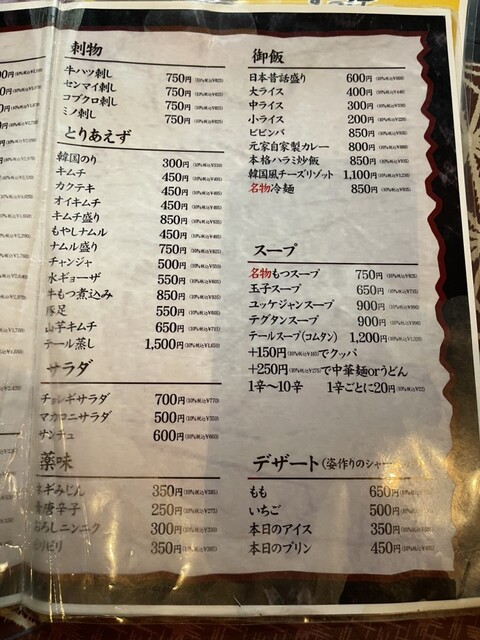 刺物
牛ハツ刺し 750円(10%税込¥825)
センマイ刺し 750円(10%税込¥825)
コブクロ刺し 750円(10%税込¥825)
ミノ刺し 750円(10%税込¥825)
とりあえず
韓国のり 300円(10%税込¥330)
キムチ 450円(10%税込¥495)
カクテキ 450円(10%税込¥495)
オイキムチ 450円(10%税込¥495)
キムチ盛り 850円(10%税込¥935)
もやしナムル 450円(10%税込¥495)
ナムル盛り 750円(10%税込¥825)
チャンジャ 500円(10%税込¥550)
水ギョーザ 550円(10%税込¥605)
牛もつ煮込み 850円(10%税込¥935)
豚足 550円(10%税込¥605)
山芋キムチ 650円(10%税込¥715)
テール蒸し 1,500円(10%税込¥1,650)
サラダ
チョレギサラダ 700円(10%税込¥770)
マカロニサラダ 500円(10%税込¥550)
サンチュ 600円(10%税込¥660)
薬味
ネギみじん 350円(10%税込¥385)
唐辛子 250円(10%税込¥275)
おろしニンニク 300円(10%税込¥330)
ピリ 350円(10%税込¥385)
御飯
日本昔話盛り 600円(10%税込¥660)
大ライス 400円(10%税込¥440)
中ライス 300円(10%税込¥330)
小ライス 200円(10%税込¥220)
ビビンバ 850円(10%税込¥935)
元家自家製カレー 800円(10%税込¥880)
本格ハラミ炒飯 850円(10%税込¥935)
韓国風チーズリゾット 1,100円(10%税込¥1,210)
名物冷麺 850円(10%税込¥935)
スープ
名物もつスープ 750円(10%税込¥825)
玉子スープ 650円(10%税込¥715)
ユッケジャンスープ 900円(10%税込¥990)
テグタンスープ 900円(10%税込¥990)
テールスープ(コムタン) 1,200円(10%税込¥1,320)
+150円(10%税込¥165)でクッパ
+250円(10%税込¥275)で中華麺orうどん
1辛〜10辛 1辛ごとに20円(10%税込¥22)
デザート(姿作りのシャー
もも 650円(10%税込¥715)
いちご 500円
本日のアイス 350円(10%税込¥385)
本日のプリン 450円(10%税込¥495)